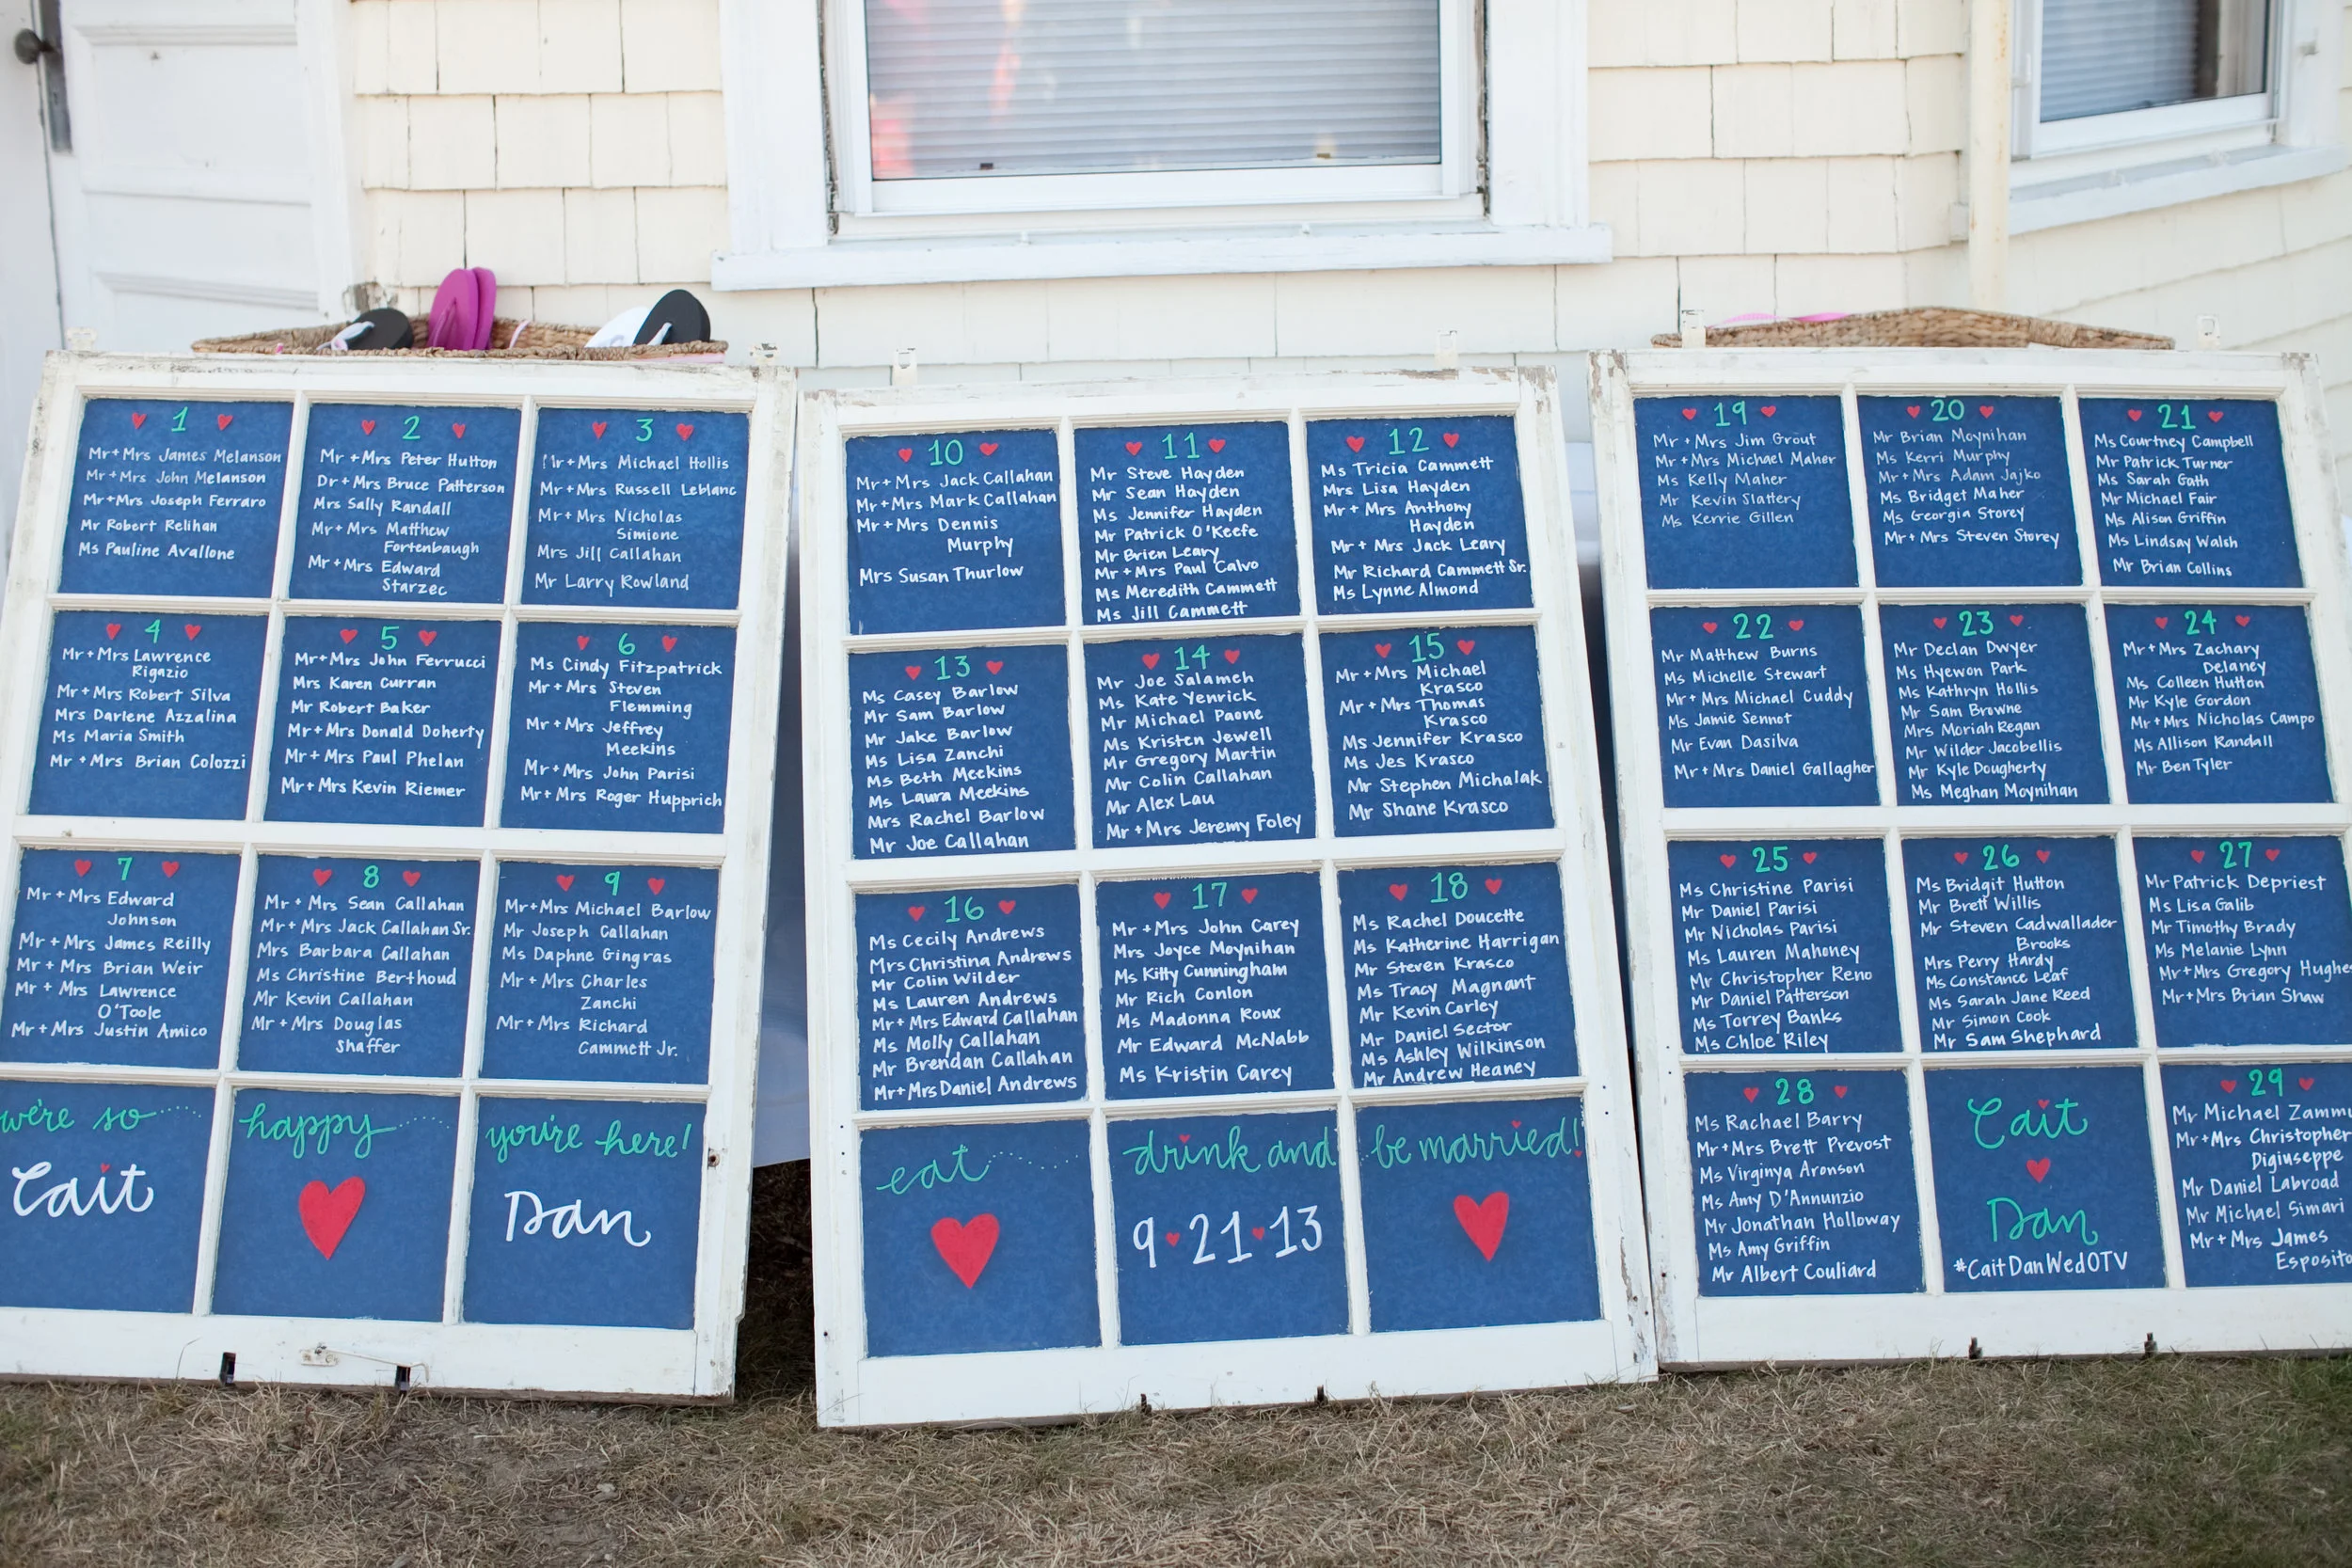 1
Mr+Mrs James Melanson
Mr+Mrs John Melanson
Mr+Mrs Joseph Ferraro
Mr Robert Relihan
Ms Pauline Avallone
2
Mr+Mrs Peter Hutton
Dr+Mrs Bruce Patterson
Mrs Sally Randall
Mr+Mrs Matthew
Fortenbaugh
Mr+Mrs Edward
Starzec
3
Mr+Mrs Michael Hollis
Mr+Mrs Russell Leblanc
Mr+Mrs Nicholas
Simione
Mrs Jill Callahan
Mr Larry Rowland
4
Mr+Mrs Lawrence
Rigazio
Mr+Mrs Robert Silva
Mrs Darlene Azzalina
Ms Maria Smith
Mr+Mrs Brian Colozzi
5
Mr+Mrs John Ferrucci
Mrs Karen Curran
Mr Robert Baker
Mr+Mrs Donald Doherty
Mr+Mrs Paul Phelan
Mr+Mrs Kevin Riemer
6
Ms Cindy Fitzpatrick
Mr+Mrs Steven
Flemming
Mr+Mrs Jeffrey
Meekins
Mr+Mrs John Parisi
Mr+Mrs Roger Hupprich
7
Mr+Mrs Edward
Johnson
Mr+Mrs James Reilly
Mr+Mrs Brian Weir
Mr+Mrs Lawrence
O'Toole
Mr+Mrs Justin Amico
8
Mr+Mrs Sean Callahan
Mr+Mrs Jack Callahan Sr.
Mrs Barbara Callahan
Ms Christine Berthoud
Mr Kevin Callahan
Mr+Mrs Douglas
Shaffer
9
Mr+Mrs Michael Barlow
Mr Joseph Callahan
Ms Daphne Gingras
Mr+Mrs Charles
Zanchi
Mr+Mrs Richard
Cammett Jr.
we're so happy you're here!
Cait Dan
10
Mr+Mrs Jack Callahan
Mr+Mrs Mark Callahan
Mr+Mrs Dennis
Murphy
Mrs Susan Thurlow
11
Mr Steve Hayden
Mr Sean Hayden
Ms Jennifer Hayden
Mr Patrick O'Keefe
Mr Brien Leary
Mr+Mrs Paul Calvo
Ms Meredith Cammett
Ms Jill Cammett
12
Ms Tricia Cammett
Mrs Lisa Hayden
Mr+Mrs Anthony
Hayden
Mr+Mrs Jack Leary
Mr Richard Cammett Sr.
Ms Lynne Almond
13
Ms Casey Barlow
Mr Sam Barlow
Mr Jake Barlow
Ms Lisa Zanchi
Ms Beth Meekins
Ms Laura Meekins
Mrs Rachel Barlow
Mr Joe Callahan
14
Mr Joe Salameh
Ms Kate Yenrick
Mr Michael Paone
Ms Kristen Jewell
Mr Gregory Martin
Mr Colin Callahan
Mr Alex Lau
Mr+Mrs Jeremy Foley
15
Mr+Mrs Michael
Krasco
Mr+Mrs Thomas
Krasco
Ms Jennifer Krasco
Ms Jes Krasco
Mr Stephen Michalak
Mr Shane Krasco
16
Ms Cecily Andrews
Mrs Christina Andrews
Mr Colin Wilder
Ms Lauren Andrews
Mr+Mrs Edward Callahan
Ms Molly Callahan
Mr Brendan Callahan
Mr+Mrs Daniel Andrews
17
Mr+Mrs John Carey
Mrs Joyce Moynihan
Ms Kitty Cunningham
Mr Rich Conlon
Ms Madonna Roux
Mr Edward McNabb
Ms Kristin Carey
18
Ms Rachel Doucette
Ms Katherine Harrigan
Mr Steven Krasco
Ms Tracy Magnant
Mr Kevin Corley
Mr Daniel Sector
Ms Ashley Wilkinson
Mr Andrew Heaney
eat drink and be married!
9 21 13
19
Mr+Mrs Jim Grout
Mr+Mrs Michael Maher
Ms Kelly Maher
Mr Kevin Slattery
Ms Kerrie Gillen
20
Mr Brian Moynihan
Ms Kerri Murphy
Mr+Mrs Adam Jajko
Ms Bridget Maher
Ms Georgia Storey
Mr+Mrs Steven Storey
21
Ms Courtney Campbell
Mr Patrick Turner
Ms Sarah Gath
Mr Michael Fair
Ms Alison Griffin
Ms Lindsay Walsh
Mr Brian Collins
22
Mr Matthew Burns
Ms Michelle Stewart
Mr+Mrs Michael Cuddy
Ms Jamie Sennot
Mr Evan Dasilva
Mr+Mrs Daniel Gallagher
23
Mr Declan Dwyer
Ms Hyewon Park
Ms Kathryn Hollis
Mr Sam Browne
Mrs Moriah Regan
Mr Wilder Jacobellis
Mr Kyle Dougherty
Ms Meghan Moynihan
24
Mr+Mrs Zachary
Delaney
Ms Colleen Hutton
Mr Kyle Gordon
Mr+Mrs Nicholas Campo
Ms Allison Randall
Mr Ben Tyler
25
Ms Christine Parisi
Mr Daniel Parisi
Mr Nicholas Parisi
Ms Lauren Mahoney
Mr Christopher Reno
Mr Daniel Patterson
Ms Torrey Banks
Ms Chloe Riley
26
Ms Bridgit Hutton
Mr Brett Willis
Mr Steven Cadwallader
Brooks
Mrs Perry Hardy
Ms Constance Leaf
Ms Sarah Jane Reed
Mr Simon Cook
Mr Sam Shephard
27
Mr Patrick Depriest
Ms Lisa Galib
Mr Timothy Brady
Ms Melanie Lynn
Mr+Mrs Gregory Hughe
Mr+Mrs Brian Shaw
28
Ms Rachael Barry
Mr+Mrs Brett Prevost
Ms Virginya Aronson
Ms Amy D'Annunzio
Mr Jonathan Holloway
Ms Amy Griffin
Mr Albert Couliard
Cait
Dan
#CaitDanWedOTV
29
Mr Michael Zamm
Mr+Mrs Christopher
Digiuseppe
Mr Daniel Labroad
Mr Michael Simari
Mr+Mrs James
Esposito